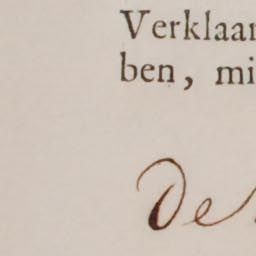 Verklaar
ben, mi
De